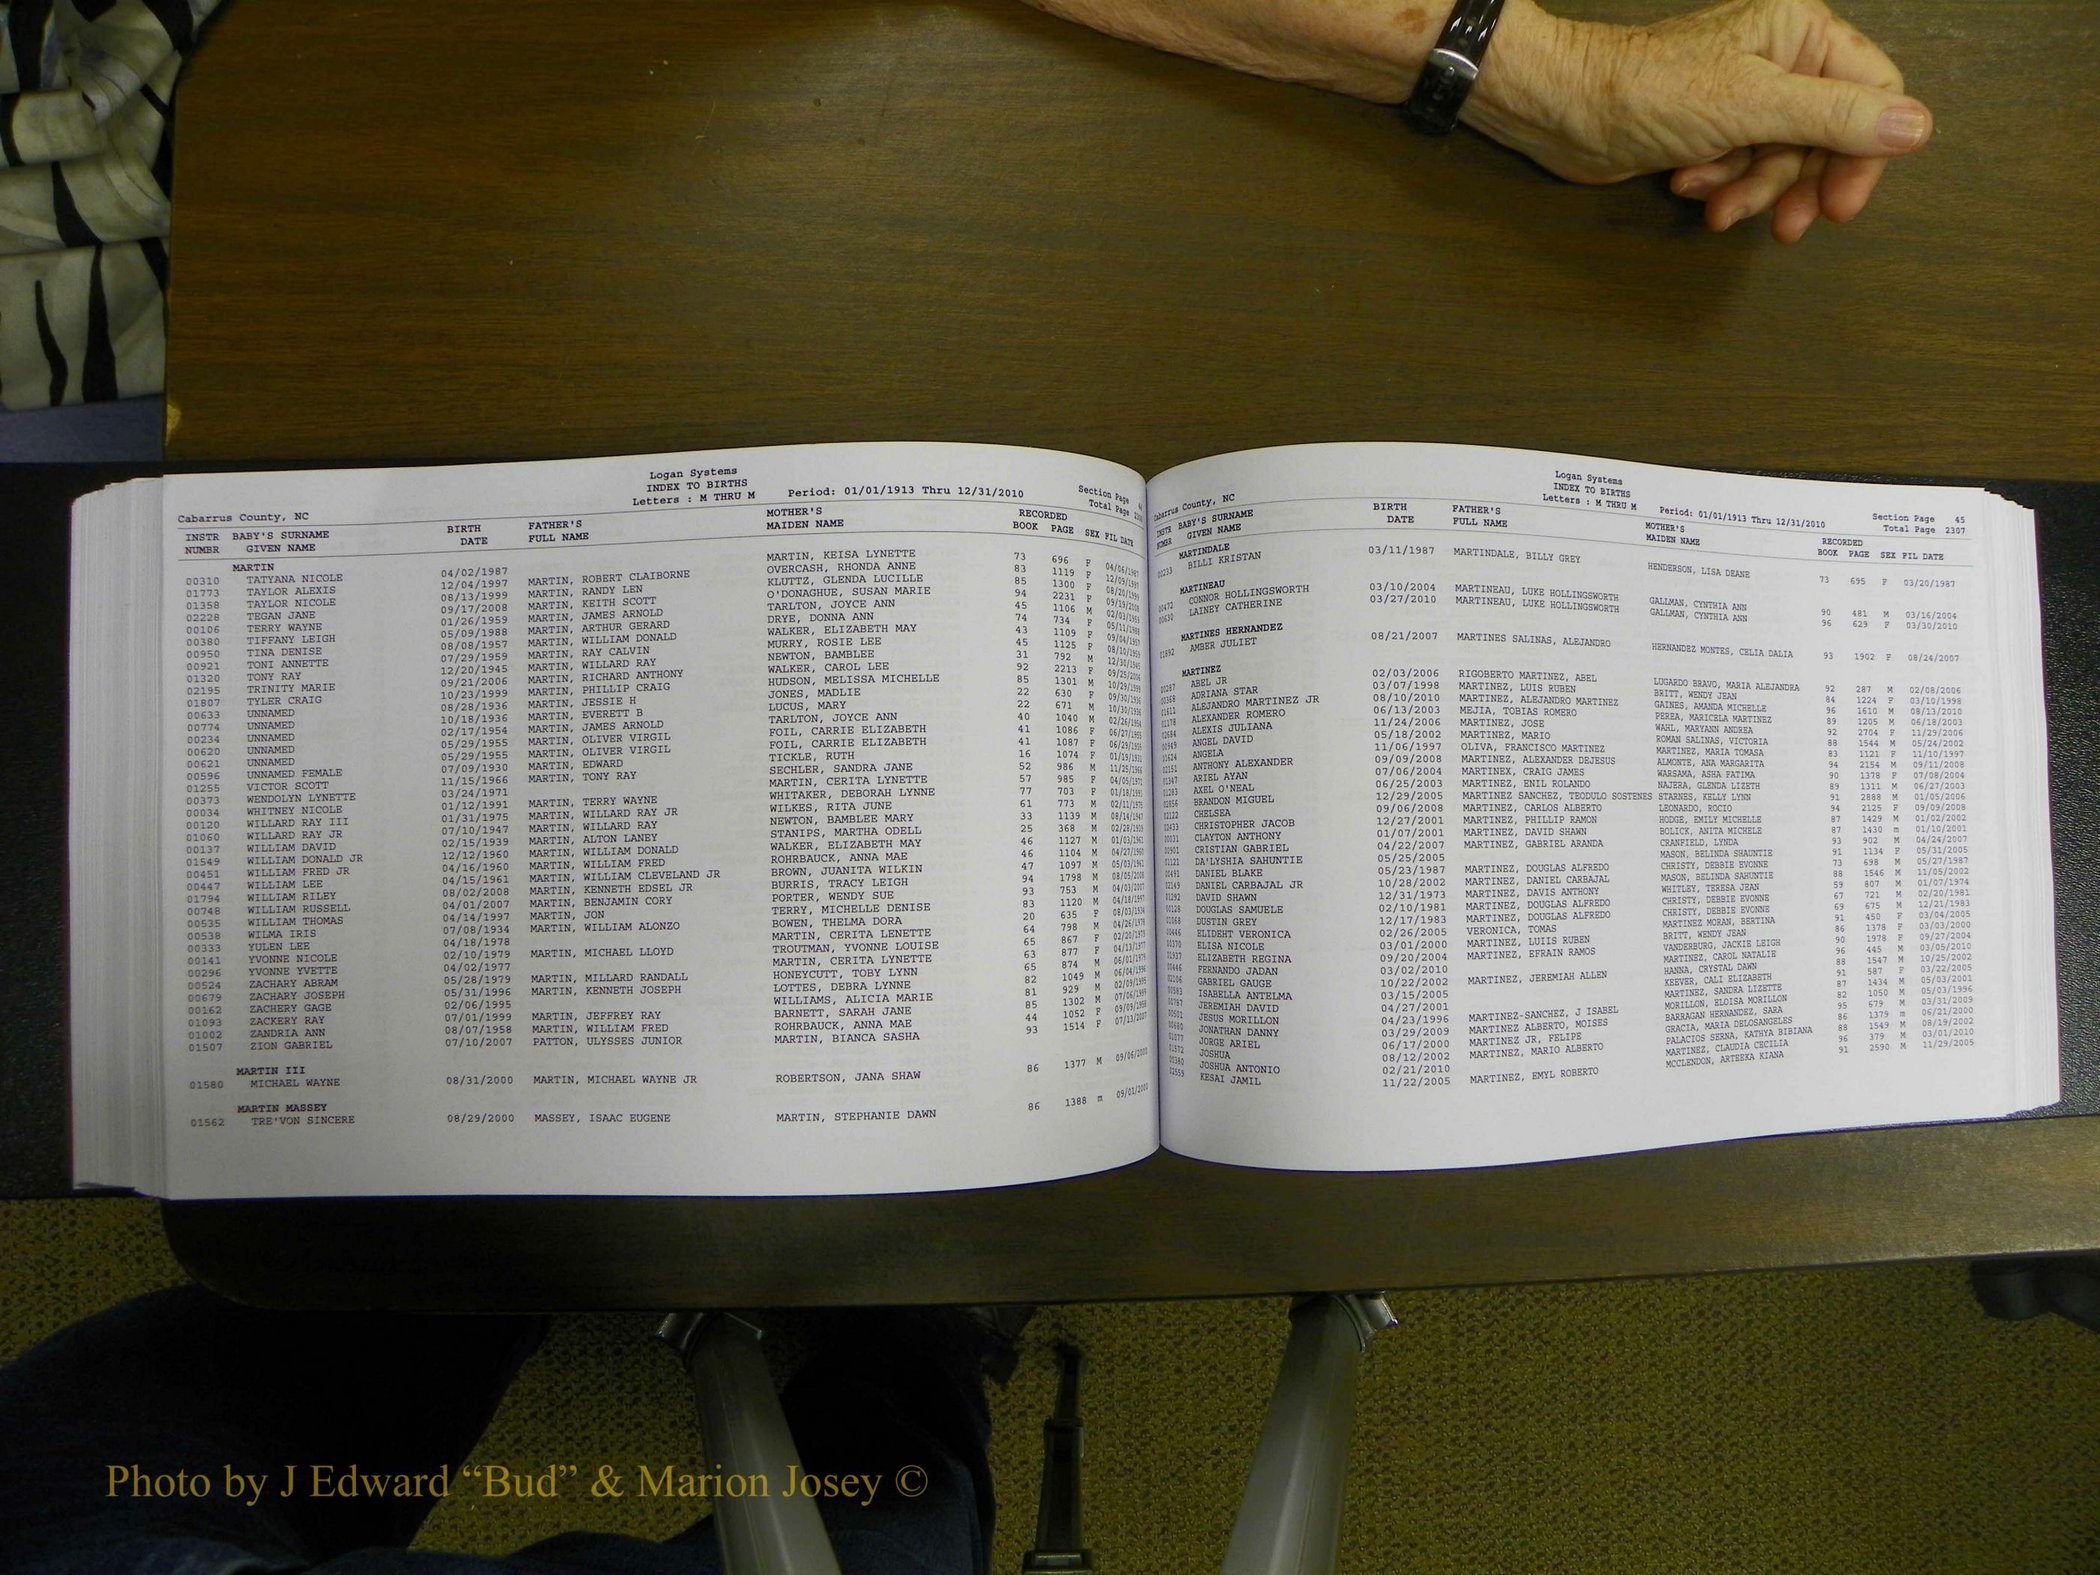 Logan Systems
INDEX TO BIRTHS
Letters : M THRU M Period: 01/01/1913 Thru 12/31/2010 Section Page
Cabarrus County, NC Total Page
INSTR BABY'S SURNAME BIRTH FATHER'S MOTHER'S RECORDED
NUMBR GIVEN NAME DATE FULL NAME MAIDEN NAME BOOK PAGE SEX FIL DATE
MARTIN
00310 TATYANA NICOLE 04/02/1987 MARTIN, KEISA LYNETTE 73 696 F 04/06/1987
01773 TAYLOR ALEXIS 12/04/1997 MARTIN, ROBERT CLAIBORNE OVERCASH, RHONDA ANNE 83 1119 F 12/09/1997
01358 TAYLOR NICOLE 08/13/1999 MARTIN, RANDY LEN KLUTTZ, GLENDA LUCILLE 85 1300 F 08/20/1999
02228 TEGAN JANE 09/17/2008 MARTIN, KEITH SCOTT O'DONAGHUE, SUSAN MARIE 94 2231 F 09/19/2008
00106 TERRY WAYNE 01/26/1959 MARTIN, JAMES ARNOLD TARLTON, JOYCE ANN 45 1106 M 02/03/1959
00380 TIFFANY LEIGH 05/09/1988 MARTIN, ARTHUR GERARD DRYE, DONNA ANN 74 734 F 05/11/1988
00950 TINA DENISE 08/08/1957 MARTIN, WILLIAM DONALD WALKER, ELIZABETH MAY 43 1109 F 09/04/1957
00921 TONI ANNETTE 07/29/1959 MARTIN, RAY CALVIN MURRY, ROSIE LEE 45 1125 F 08/10/1959
01320 TONY RAY 12/20/1945 MARTIN, WILLARD RAY NEWTON, BAMBLEE 31 792 M 12/30/1945
02195 TRINITY MARIE 09/21/2006 MARTIN, RICHARD ANTHONY WALKER, CAROL LEE 92 2213 F 09/25/2006
01807 TYLER CRAIG 10/23/1999 MARTIN, PHILLIP CRAIG HUDSON, MELISSA MICHELLE 85 1301 M 10/29/1999
00633 UNNAMED 08/28/1936 MARTIN, JESSIE H JONES, MADLIE 22 630 F 09/30/1936
00774 UNNAMED 10/18/1936 MARTIN, EVERETT B LUCUS, MARY 22 671 M 10/30/1936
00234 UNNAMED 02/17/1954 MARTIN, JAMES ARNOLD TARLTON, JOYCE ANN 40 1040 M 02/26/1954
00620 UNNAMED 05/29/1955 MARTIN, OLIVER VIRGIL FOIL, CARRIE ELIZABETH 41 1086 F 06/27/1955
00621 UNNAMED 05/29/1955 MARTIN, OLIVER VIRGIL FOIL, CARRIE ELIZABETH 41 1087 F 06/29/1955
00596 UNNAMED FEMALE 07/09/1930 MARTIN, EDWARD TICKLE, RUTH 16 1074 F 01/19/1931
01255 VICTOR SCOTT 11/15/1966 MARTIN, TONY RAY SECHLER, SANDRA JANE 52 986 M 11/25/1966
00373 WENDOLYN LYNETTE 03/24/1971 MARTIN, CERITA LYNETTE 57 985 F 04/05/1971
00034 WHITNEY NICOLE 01/12/1991 MARTIN, TERRY WAYNE WHITAKER, DEBORAH LYNNE 77 703 F 01/18/1991
00120 WILLARD RAY III 01/31/1975 MARTIN, WILLARD RAY JR WILKES, RITA JUNE 61 773 M 02/11/1975
01060 WILLARD RAY JR 07/10/1947 MARTIN, WILLARD RAY NEWTON, BAMBLEE MARY 33 1139 M 08/14/1947
00137 WILLIAM DAVID 02/15/1939 MARTIN, ALTON LANEY STANIPS, MARTHA ODELL 25 368 M 02/28/1939
01549 WILLIAM DONALD JR 12/12/1960 MARTIN, WILLIAM DONALD WALKER, ELIZABETH MAY 46 1127 M 01/03/1961
00451 WILLIAM FRED JR 04/16/1960 MARTIN, WILLIAM FRED ROHRBAUCK, ANNA MAE 46 1104 M 04/27/1960
00447 WILLIAM LEE 04/15/1961 MARTIN, WILLIAM CLEVELAND JR BROWN, JUANITA WILKIN 47 1097 M 05/03/1961
01794 WILLIAM RILEY 08/02/2008 MARTIN, KENNETH EDSEL JR BURRIS, TRACY LEIGH 94 1798 M 08/05/2008
00748 WILLIAM RUSSELL 04/01/2007 MARTIN, BENJAMIN CORY PORTER, WENDY SUE 93 753 M 04/03/2007
00535 WILLIAM THOMAS 04/14/1997 MARTIN, JON TERRY, MICHELLE DENISE 83 1120 M 04/18/1997
00538 WILMA IRIS 07/08/1934 MARTIN, WILLIAM ALONZO BOWEN, THELMA DORA 20 635 F 08/03/1934
00333 YULEN LEE 04/18/1978 MARTIN, CERITA LENETTE 64 798 M 04/26/1978
00141 YVONNE NICOLE 02/10/1979 MARTIN, MICHAEL LLOYD TROUTMAN, YVONNE LOUISE 65 867 F 02/20/1979
00296 YVONNE YVETTE 04/02/1977 MARTIN, CERITA LYNETTE 63 877 F 04/13/1977
00524 ZACHARY ABRAM 05/28/1979 MARTIN, MILLARD RANDALL HONEYCUTT, TOBY LYNN 65 874 M 06/01/1979
00679 ZACHARY JOSEPH 05/31/1996 MARTIN, KENNETH JOSEPH LOTTES, DEBRA LYNNE 82 1049 M 06/04/1996
00162 ZACHERY GAGE 02/06/1995 WILLIAMS, ALICIA MARIE 81 929 M 02/09/1995
01093 ZACKERY RAY 07/01/1999 MARTIN, JEFFREY RAY BARNETT, SARAH JANE 85 1302 M 07/06/1999
01002 ZANDRIA ANN 08/07/1958 MARTIN, WILLIAM FRED ROHRBAUCK, ANNA MAE 44 1052 F 09/09/1958
01507 ZION GABRIEL 07/10/2007 PATTON, ULYSSES JUNIOR MARTIN, BIANCA SASHA 93 1514 F 07/13/2007
MARTIN III
01580 MICHAEL WAYNE 08/31/2000 MARTIN, MICHAEL WAYNE JR ROBERTSON, JANA SHAW 86 1377 M 09/06/2000
MARTIN MASSEY
01562 TRE'VON SINCERE 08/29/2000 MASSEY, ISAAC EUGENE MARTIN, STEPHANIE DAWN 86 1388 m 09/01/2000
Logan Systems
INDEX TO BIRTHS
Letters : M THRU M Period: 01/01/1913 Thru 12/31/2010 Section Page 45
Cabarrus County, NC Total Page 2307
INSTR BABY'S SURNAME BIRTH FATHER'S MOTHER'S RECORDED
NUMBR GIVEN NAME DATE FULL NAME MAIDEN NAME BOOK PAGE SEX FIL DATE
MARTINDALE
00233 BILLI KRISTAN 03/11/1987 MARTINDALE, BILLY GREY HENDERSON, LISA DEANE 73 695 F 03/20/1987
MARTINEAU
00472 CONNOR HOLLINGSWORTH 03/10/2004 MARTINEAU, LUKE HOLLINGSWORTH GALLMAN, CYNTHIA ANN 90 481 M 03/16/2004
00630 LAINEY CATHERINE 03/27/2010 MARTINEAU, LUKE HOLLINGSWORTH GALLMAN, CYNTHIA ANN 96 629 F 03/30/2010
MARTINES HERNANDEZ
01892 AMBER JULIET 08/21/2007 MARTINES SALINAS, ALEJANDRO HERNANDEZ MONTES, CELIA DALIA 93 1902 F 08/24/2007
MARTINEZ
00287 ABEL JR 02/03/2006 RIGOBERTO MARTINEZ, ABEL LUGARDO BRAVO, MARIA ALEJANDRA 92 287 M 02/08/2006
00368 ADRIANA STAR 03/07/1998 MARTINEZ, LUIS RUBEN BRITT, WENDY JEAN 84 1224 F 03/10/1998
01611 ALEJANDRO MARTINEZ JR 08/10/2010 MARTINEZ, ALEJANDRO MARTINEZ GAINES, AMANDA MICHELLE 96 1610 M 08/13/2010
01178 ALEXANDER ROMERO 06/13/2003 MEJIA, TOBIAS ROMERO PEREA, MARICELA MARTINEZ 89 1205 M 06/18/2003
02684 ALEXIS JULIANA 11/24/2006 MARTINEZ, JOSE WAHL, MARYANN ANDREA 92 2704 F 11/29/2006
00949 ANGEL DAVID 05/18/2002 MARTINEZ, MARIO ROMAN SALINAS, VICTORIA 88 1544 M 05/24/2002
01624 ANGELA 11/06/1997 OLIVA, FRANCISCO MARTINEZ MARTINEZ, MARIA TOMASA 83 1121 F 11/10/1997
02151 ANTHONY ALEXANDER 09/09/2008 MARTINEZ, ALEXANDER DEJESUS ALMONTE, ANA MARGARITA 94 2154 M 09/11/2008
01347 ARIEL AYAN 07/06/2004 MARTINEX, CRAIG JAMES WARSAMA, ASHA FATIMA 90 1378 F 07/08/2004
01283 AXEL O'NEAL 06/25/2003 MARTINEZ, ENIL ROLANDO NAJERA, GLENDA LIZETH 89 1311 M 06/27/2003
02856 BRANDON MIGUEL 12/29/2005 MARTINEZ SANCHEZ, TEODULO SOSTENES STARNES, KELLY LYNN 91 2888 M 01/05/2006
02122 CHELSEA 09/06/2008 MARTINEZ, CARLOS ALBERTO LEONARDO, ROCIO 94 2125 F 09/09/2008
02433 CHRISTOPHER JACOB 12/27/2001 MARTINEZ, PHILLIP RAMON HODGE, EMILY MICHELLE 87 1429 M 01/02/2002
00031 CLAYTON ANTHONY 01/07/2001 MARTINEZ, DAVID SHAWN BOLICK, ANITA MICHELE 87 1430 m 01/10/2001
00901 CRISTIAN GABRIEL 04/22/2007 MARTINEZ, GABRIEL ARANDA CRANFIELD, LYNDA 93 902 M 04/24/2007
01121 DA'LYSHIA SAHUNTIE 05/25/2005 MASON, BELINDA SHAUNTIE 91 1134 F 05/31/2005
00491 DANIEL BLAKE 05/23/1987 MARTINEZ, DOUGLAS ALFREDO CHRISTY, DEBBIE EVONNE 73 698 M 05/27/1987
02149 DANIEL CARBAJAL JR 10/28/2002 MARTINEZ, DANIEL CARBAJAL MASON, BELINDA SAHUNTIE 88 1546 M 11/05/2002
01292 DAVID SHAWN 12/31/1973 MARTINEZ, DAVIS ANTHONY WHITLEY, TERESA JEAN 59 807 M 01/07/1974
00128 DOUGLAS SAMUELE 02/10/1981 MARTINEZ, DOUGLAS ALFREDO CHRISTY, DEBBIE EVONNE 67 721 M 02/20/1981
01068 DUSTIN GREY 12/17/1983 MARTINEZ, DOUGLAS ALFREDO CHRISTY, DEBBIE EVONNE 69 675 M 12/21/1983
00446 ELIDEHT VERONICA 02/26/2005 VERONICA, TOMAS MARTINEZ MORAN, BERTINA 91 450 F 03/04/2005
00370 ELISA NICOLE 03/01/2000 MARTINEZ, LUIIS RUBEN BRITT, WENDY JEAN 86 1378 F 03/03/2000
01937 ELIZABETH REGINA 09/20/2004 MARTINEZ, EFRAIN RAMOS VANDERBURG, JACKIE LEIGH 90 1978 F 09/27/2004
00446 FERNANDO JADAN 03/02/2010 MARTINEZ, CAROL NATALIE 96 445 M 03/05/2010
02106 GABRIEL GAUGE 10/22/2002 MARTINEZ, JEREMIAH ALLEN HANNA, CRYSTAL DAWN 88 1547 M 10/25/2002
00583 ISABELLA ANTELMA 03/15/2005 KEEVER, CALI ELIZABETH 91 587 F 03/22/2005
00787 JEREMIAH DAVID 04/27/2001 MARTINEZ, SANDRA LIZETTE 87 1434 M 05/03/2001
00501 JESUS MORILLON 04/23/1996 MARTINEZ-SANCHEZ, J ISABEL MORILLON, ELOISA MORILLON 82 1050 M 05/03/1996
00680 JONATHAN DANNY 03/29/2009 MARTINEZ ALBERTO, MOISES BARRAGAN HERNANDEZ, SARA 95 679 M 03/31/2009
01077 JORGE ARIEL 06/17/2000 MARTINEZ JR, FELIPE GRACIA, MARIA DELOSANGELES 86 1379 m 06/21/2000
01572 JOSHUA 08/12/2002 MARTINEZ, MARIO ALBERTO PALACIOS SERNA, KATHYA BIBIANA 88 1549 M 08/19/2002
00380 JOSHUA ANTONIO 02/21/2010 MARTINEZ, CLAUDIA CECILIA 96 379 M 03/01/2010
02559 KESAI JAMIL 11/22/2005 MARTINEZ, EMYL ROBERTO MCCLENDON, ARTEEKA KIANA 91 2590 M 11/29/2005
Photo by J Edward “Bud” & Marion Josey ©